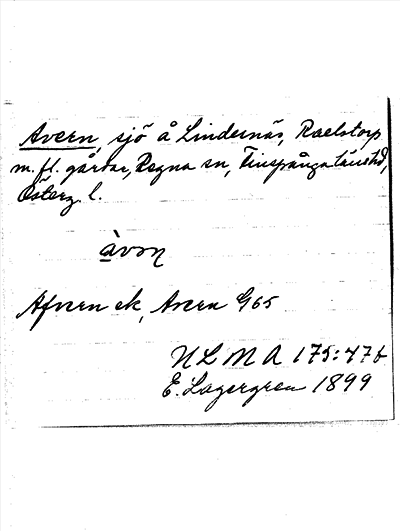 Avern, sjö å Lindernäs, Raelstorp
m. fl. gårdar, Regna sn, Finspånga länshd,
Österg. l.
àvoɳ
Afvern ek, Avern G65
N L M A 175:47b
E. Lagergren 1899